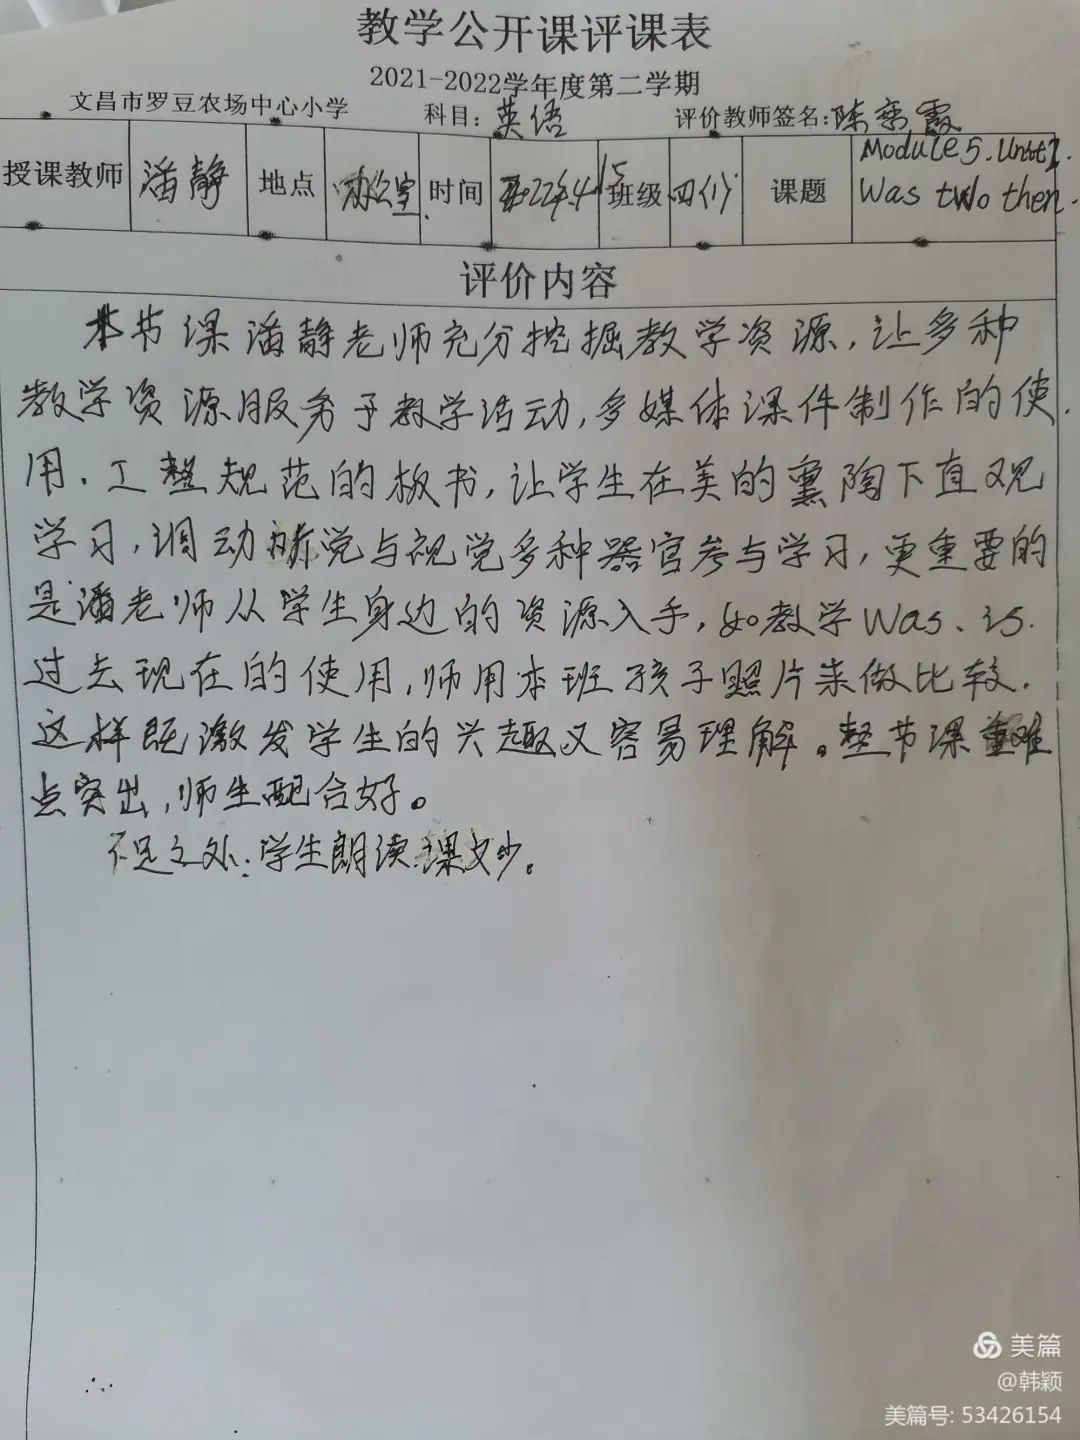 教学公开课评课表
2021-2022学年度第二学期
文昌市罗豆农场中心小学 科目: 英语 评价教师签名: 陈 霞
授课教师 潘静 地点 办公室 时间 2022年.4 15 班级 四(1) 课题 Module 5. Unit 1 Was two then.
评价内容
本节课潘静老师充分挖掘教学资源,让多种
教学资源服务于教学活动,多媒体课件制作的使
用.工整规范的板书,让学生在美的熏陶下直观
学习,调动听觉与视觉多种器官参与学习,更重要的
是潘老师从学生身边的资源入手,如教学Was、is.
过去现在的使用,师用本班孩子照片来做比较.
这样既激发学生的兴趣又容易理解。整节课重难
点突出,师生配合好。
不足之处:学生朗读课文少。
美篇
@韩颖
美篇号: 53426154